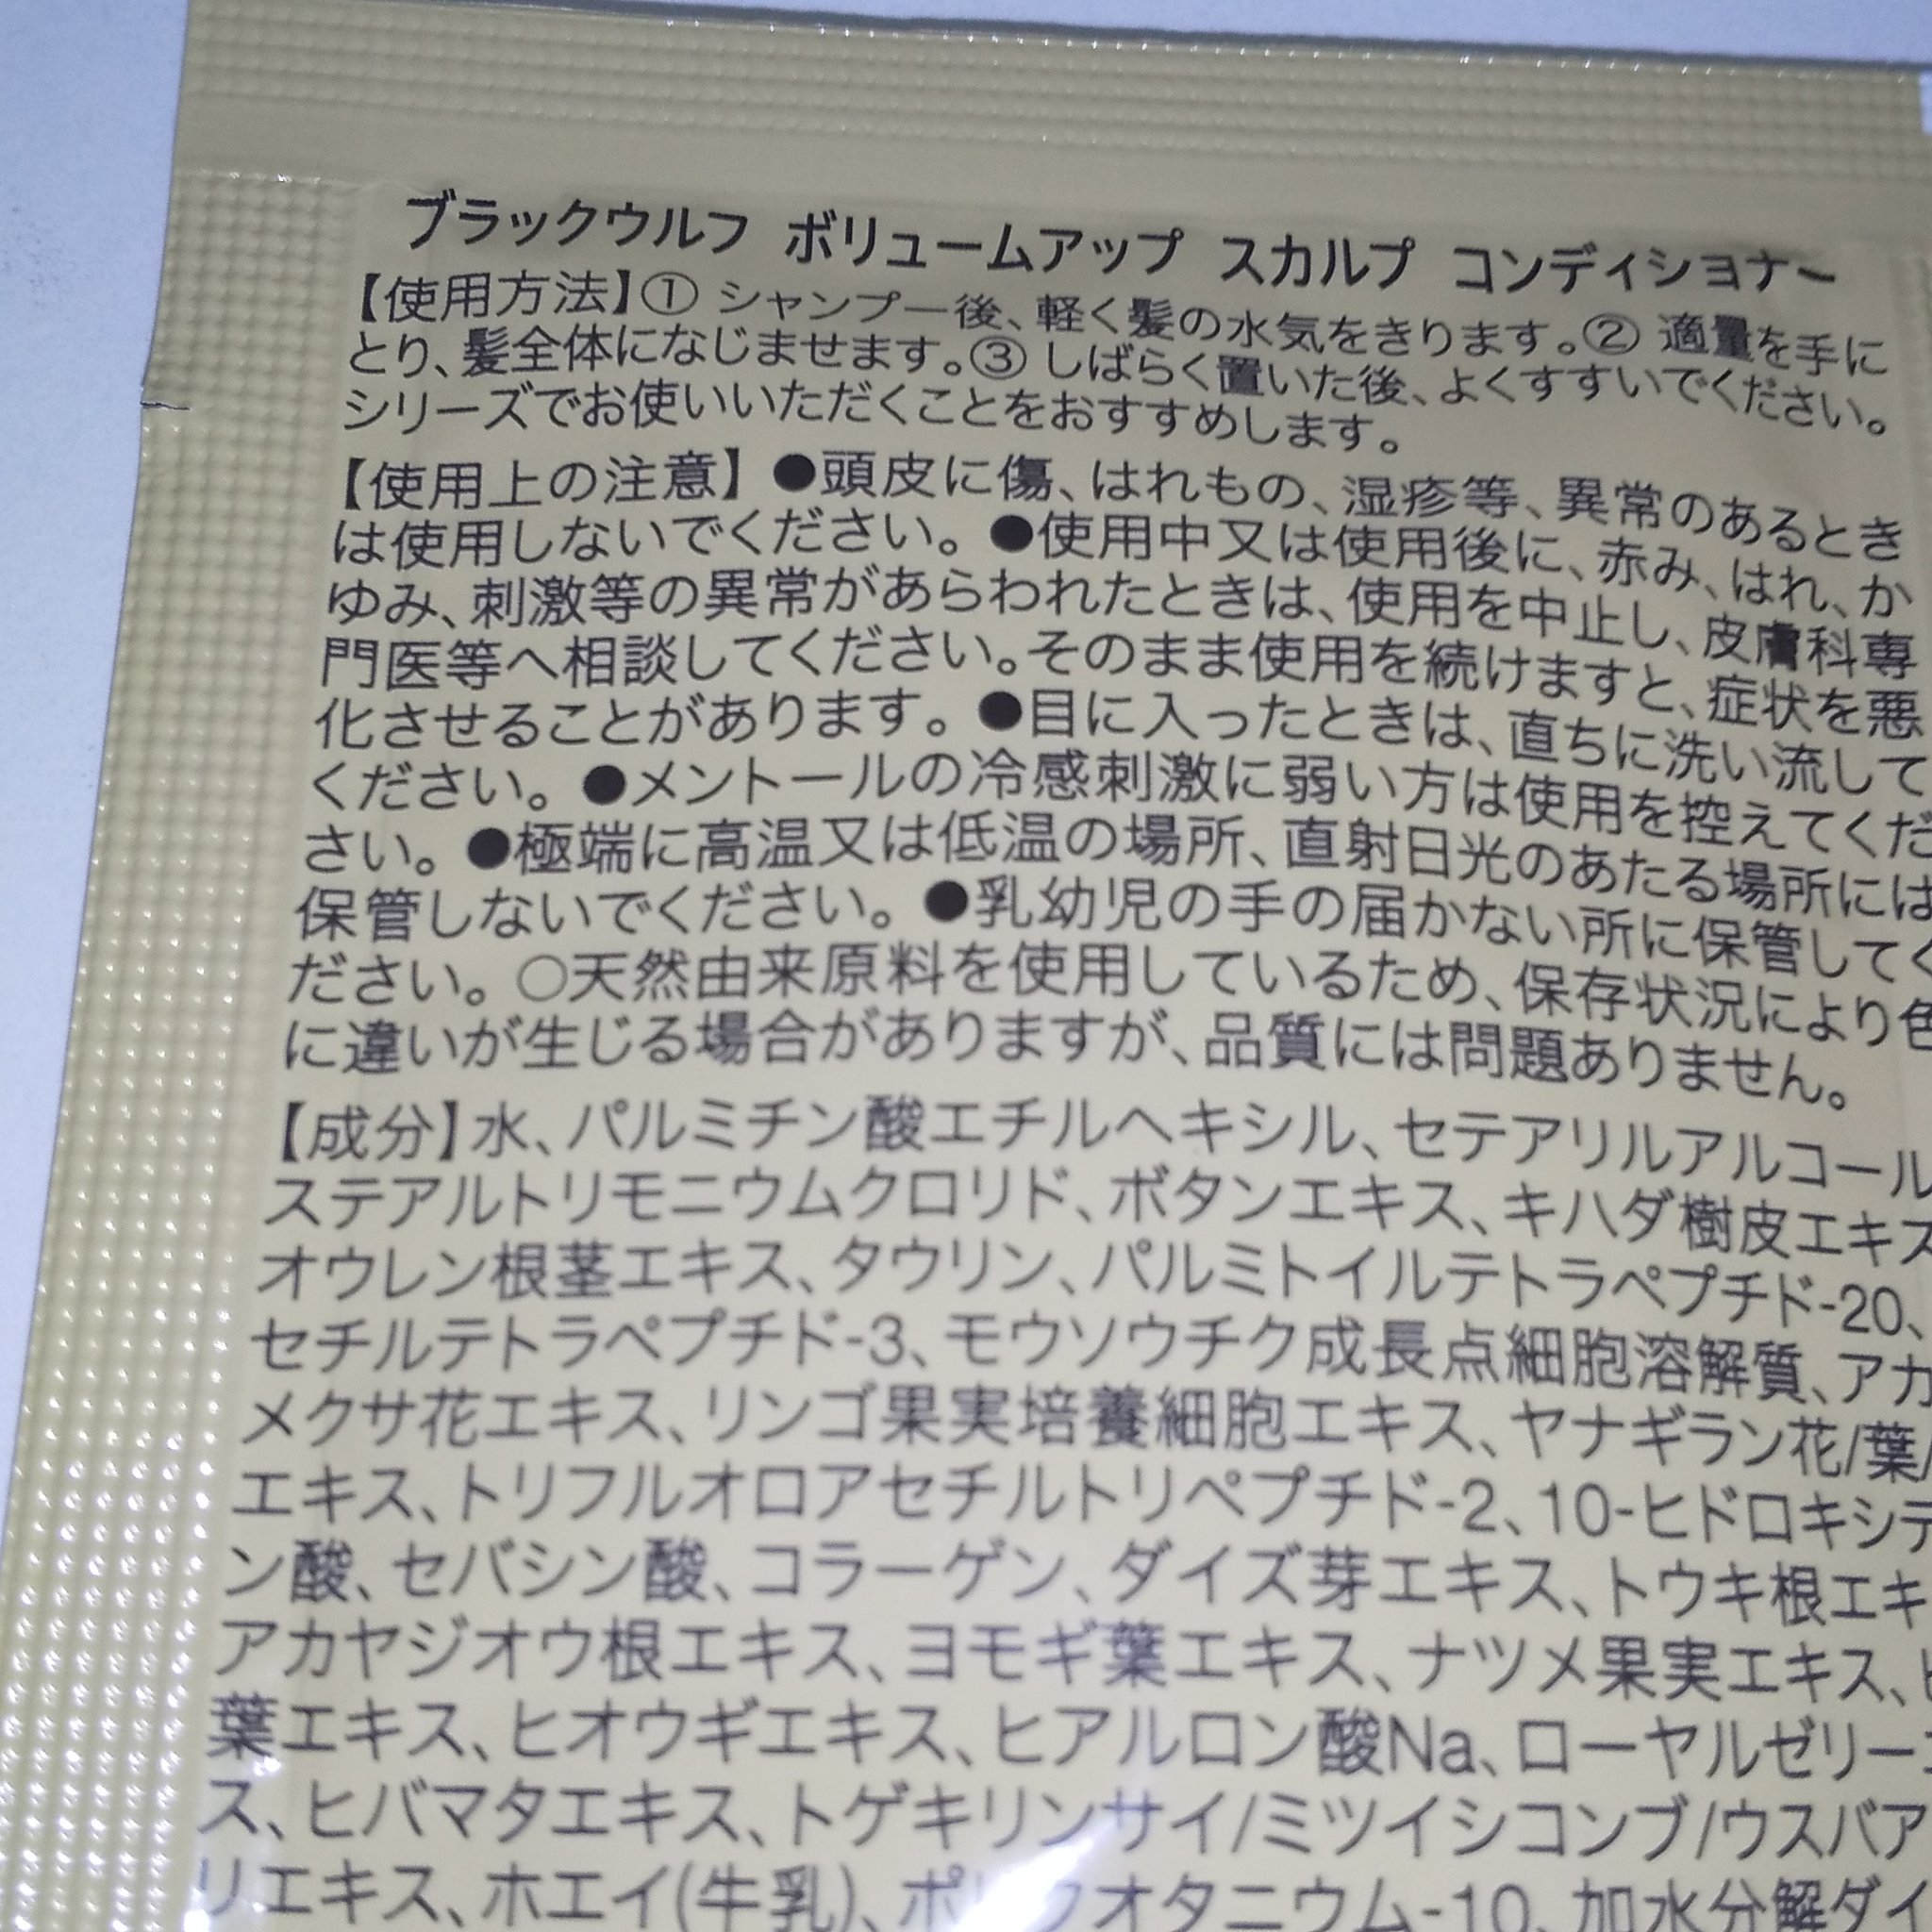 ブラックウルフ ボリュームアップ スカルプ コンディショナー
【使用方法】① シャンプー後、軽く髪の水気をきります。② 適量を手に
とり、髪全体になじませます。③ しばらく置いた後、よくすすいでください。
シリーズでお使いいただくことをおすすめします。
【使用上の注意】 ●頭皮に傷、はれもの、湿疹等、異常のあるとき
は使用しないでください。 ●使用中又は使用後に、赤み、はれ、か
ゆみ、刺激等の異常があらわれたときは、使用を中止し、皮膚科専
門医等へ相談してください。そのまま使用を続けますと、症状を悪
化させることがあります。 ●目に入ったときは、直ちに洗い流して
ください。 ●メントールの冷感刺激に弱い方は使用を控えてくだ
さい。 ●極端に高温又は低温の場所、直射日光のあたる場所には
保管しないでください。 ●乳幼児の手の届かない所に保管してく
ださい。 ○天然由来原料を使用しているため、保存状況により色
に違いが生じる場合がありますが、品質には問題ありません。
【成分】水、パルミチン酸エチルヘキシル、セテアリルアルコール
ステアルトリモニウムクロリド、ボタンエキス、キハダ樹皮エキス
オウレン根茎エキス、タウリン、パルミトイルテトラペプチド-20、
セチルテトラペプチド-3、モウソウチク成長点細胞溶解質、アカ
メクサ花エキス、リンゴ果実培養細胞エキス、ヤナギラン花/葉/
エキス、トリフルオロアセチルトリペプチド-2、10-ヒドロキシデ
ン酸、セバシン酸、コラーゲン、ダイズ芽エキス、トウキ根エキ
アカヤジオウ根エキス、ヨモギ葉エキス、ナツメ果実エキス、
葉エキス、ヒオウギエキス、ヒアルロン酸Na、ローヤルゼリー
ス、ヒバマタエキス、トゲキリンサイ/ミツイシコンブ/ウスバア
リエキス、ホエイ(牛乳)、ポリクオタニウム-10、加水分解ダイ